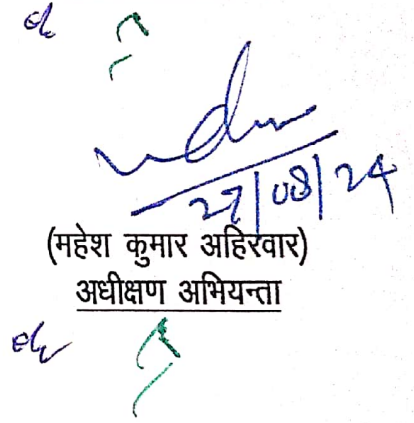 27/08/24
(महेश कुमार अहिरवार)
अधीक्षण अभियन्ता